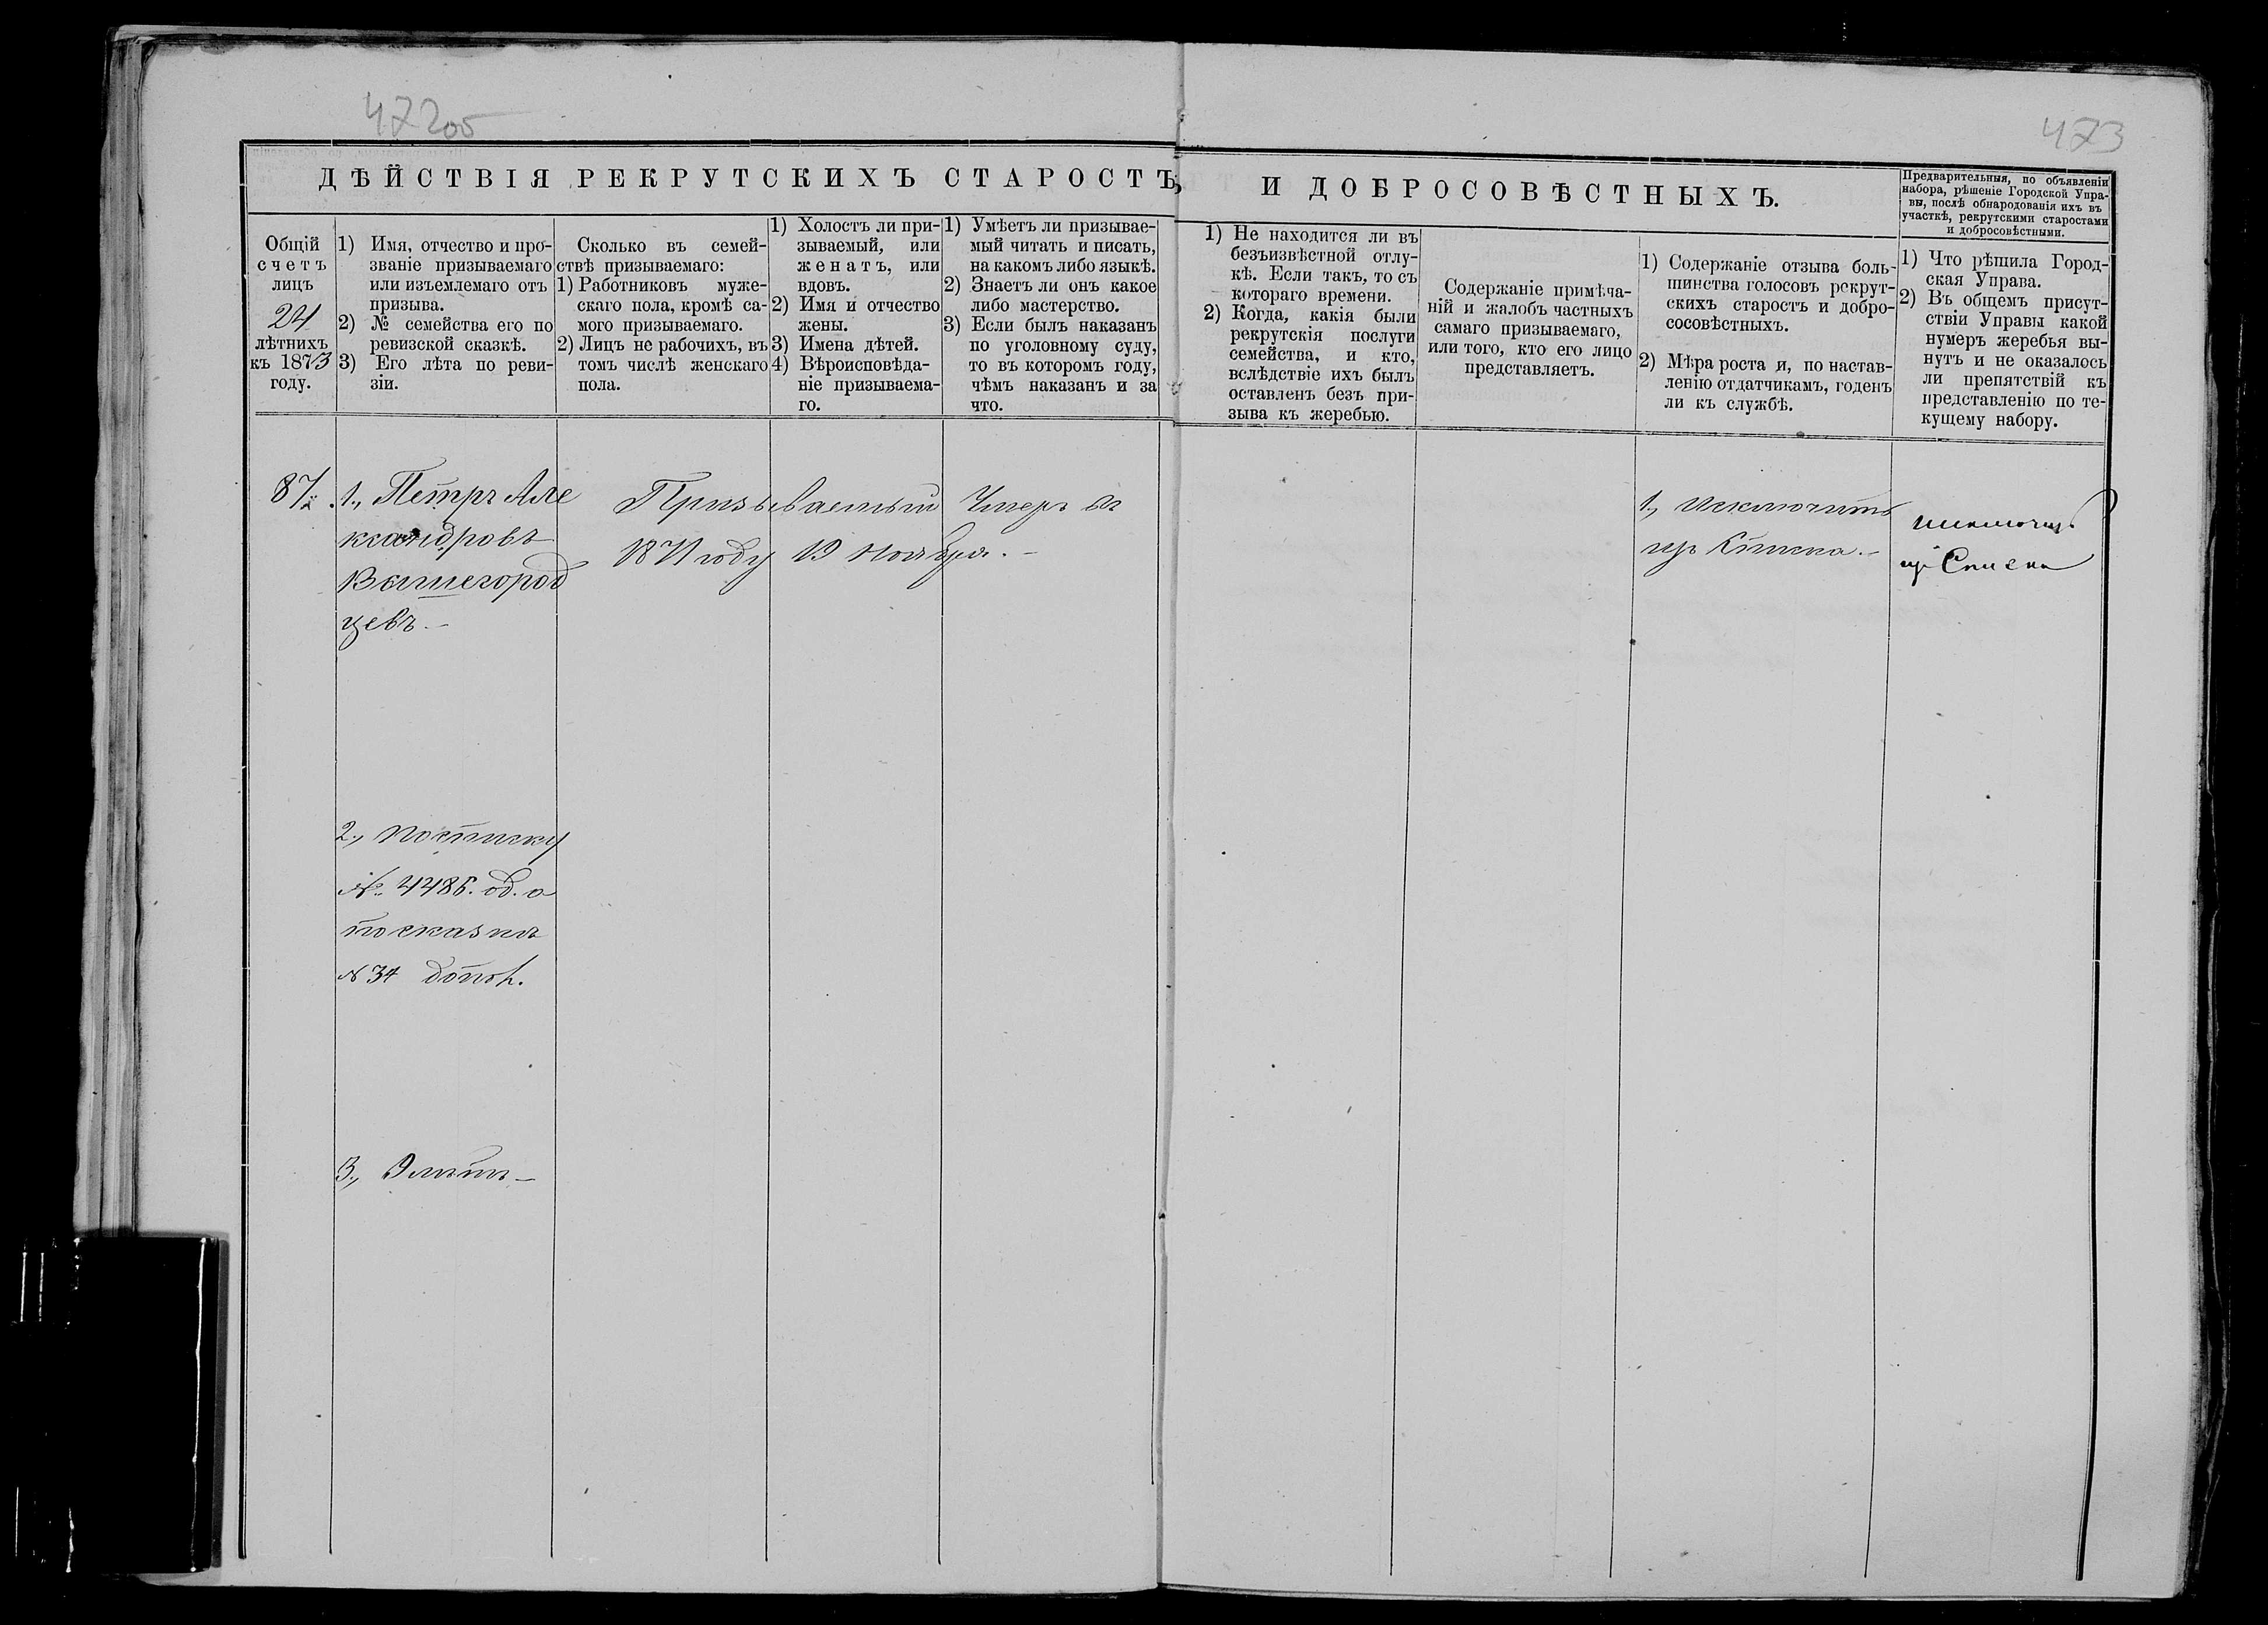 472об
473
ДѢЙСТВІЯ РЕКРУТСКИХЪ СТАРОСТЪ,
И ДОБРОСОВѢСТНЫХЪ.
Предварительныя, по объявленіи
набора, рѣшеніе Городской Упра-
вы, послѣ обнародованія ихъ въ
участкѣ, рекрутскими старостами
и добросовѣстными.
Общій
счетъ
лицъ
24
лѣтнихъ
къ 1873
году.
1) Имя, отчество и про-
званіе призываемаго
или изъемлемаго отъ
призыва.
2) № семейства его по
ревизской сказкѣ.
3) Его лѣта по реви-
зіи.
Сколько въ семей-
ствѣ призываемаго:
1) Работниковъ муже-
скаго пола, кромѣ са-
мого призываемаго.
2) Лицъ не рабочихъ, въ
томъ числѣ женскаго
пола.
1) Холостъ ли при-
зываемый, или
женатъ, или
вдовъ.
2) Имя и отчество
жены.
3) Имена дѣтей.
4) Вѣроисповѣда-
ніе призываема-
го.
1) Умѣетъ ли призывае-
мый читать и писать,
на какомъ либо языкѣ.
2) Знаетъ ли онъ какое
либо мастерство.
3) Если былъ наказанъ
по уголовному суду,
то въ которомъ году,
чѣмъ наказанъ и за
что.
1) Не находится ли въ
безъизвѣстной отлу-
кѣ. Если такъ, то съ
котораго времени.
2) Когда, какія были
рекрутскія послуги
семейства, и кто,
вслѣдствіе ихъ былъ
оставленъ безъ при-
зыва къ жеребью.
Содержаніе примѣча-
ній и жалобъ частныхъ
самаго призываемаго,
или того, кто его лицо
представляетъ.
1) Содержаніе отзыва боль-
шинства голосовъ рекрут-
скихъ старостъ и добро-
сосовѣстныхъ.
2) Мѣра роста и, по настав-
ленію отдатчикамъ, годенъ
ли къ службѣ.
1) Что рѣшила Город-
ская Управа.
2) Въ общемъ присут-
ствіи Управы какой
нумеръ жеребья вы-
нутъ и не оказалось
ли препятствій къ
представленію по те-
кущему набору.
87.
1., Петръ Але
ксандровъ
Вышегород
цевъ. —
Призываемый Умеръ въ
1871 году 19 Ноября. —
1., Исключить
изъ Списка. —
исключить
изъ Списка
2., по списку
№ 4485. об. а
по сказкѣ
№ 34 допол.
3., 9 лѣтъ —